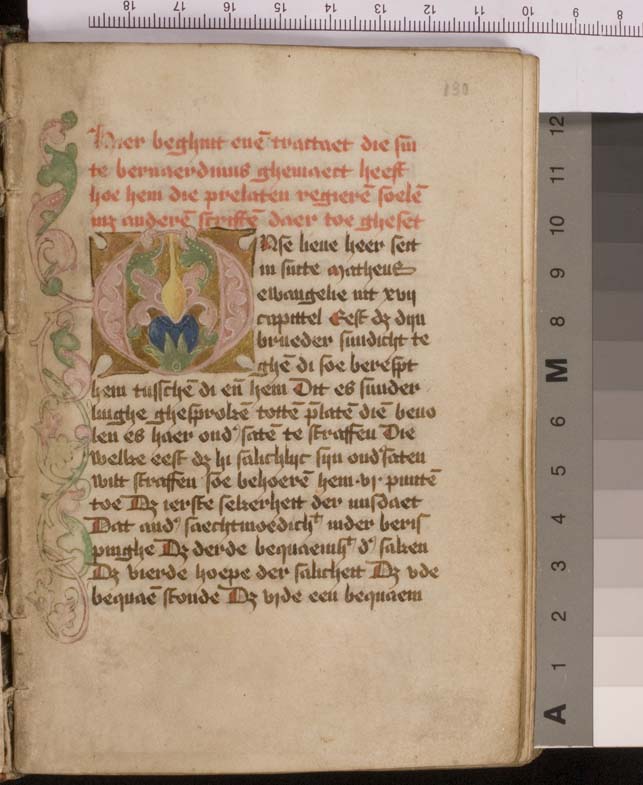 190
Hier beghint enē tractaet die sūn
te bernaerdinus ghemaect heeft
hoe hem die prelaten regierē soelē
inʒ anderē scriftē daer toe gheset
Onse lieue heer seit
in sinte matheus
ewangelie int xvij
capittel Eest dʒ dijn
brueder sundicht te
ghē di soe berespt
hem tusschē di eñ hem Dit es sunder
linghe ghesproke tottē p̄latē diē beuo
len es haer ond' satē te straffen Die
welke eest dʒ hi salichlijc sijn ond'saten
wilt straffen soe behoerē hem .vj. puntē
toe Dʒ ierste sekerheit der misdaet
Dat and' saechtmoedichᵗ inder beris
pinghe Dʒ derde bequaemhᵗ d' saken
Dʒ vierde hoepe der salicheit Dʒ vde
bequaē stonde Dʒ vjde een bequaem
18 17 16 15 14 13 12 11 10 9 8
12
11
10
9
8
M
6
5
4
3
2
1
A